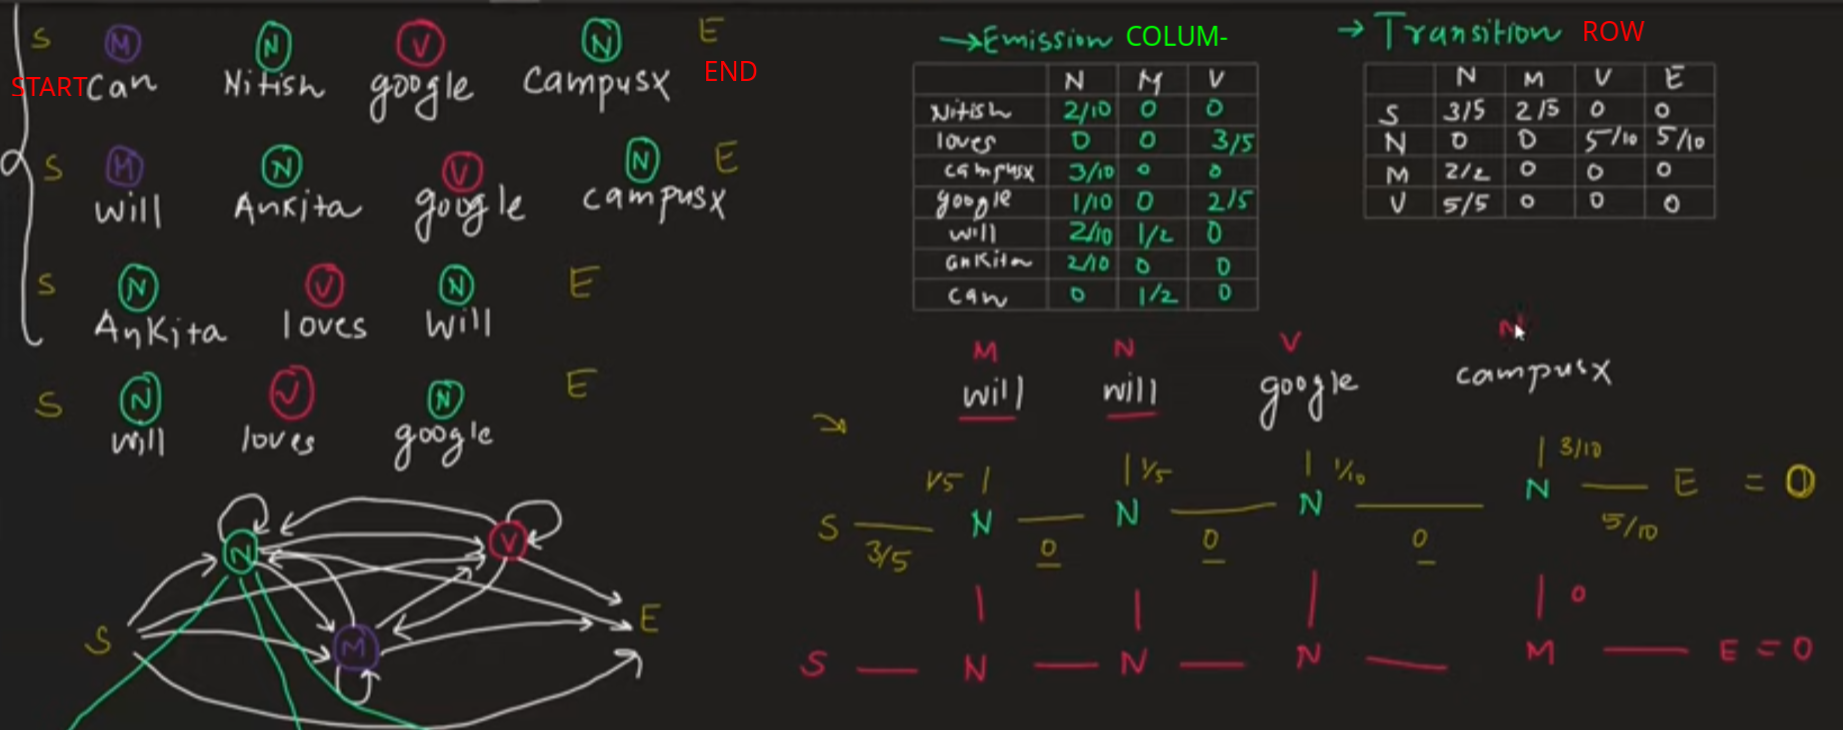 S M N V N E
START can Nitish google campusx END
S M N V N E
will Ankita google campusx
S N V N E
Ankita loves will
S N V N E
will loves google
N V
S M E
→ Emission COLUM-
N M V
Nitish 2/10 0 0
loves 0 0 3/5
campusx 3/10 0 0
google 1/10 0 2/5
will 2/10 1/2 0
ankita 2/10 0 0
can 0 1/2 0
→ Transition ROW
N M V E
S 3/5 2/5 0 0
N 0 0 5/10 5/10
M 2/2 0 0 0
V 5/5 0 0 0
M N V N
will will google campusx
1/5 1/5 1/10 3/10
S N N N N E = 0
3/5 0 0 0 5/10
0
S N N N M E = 0